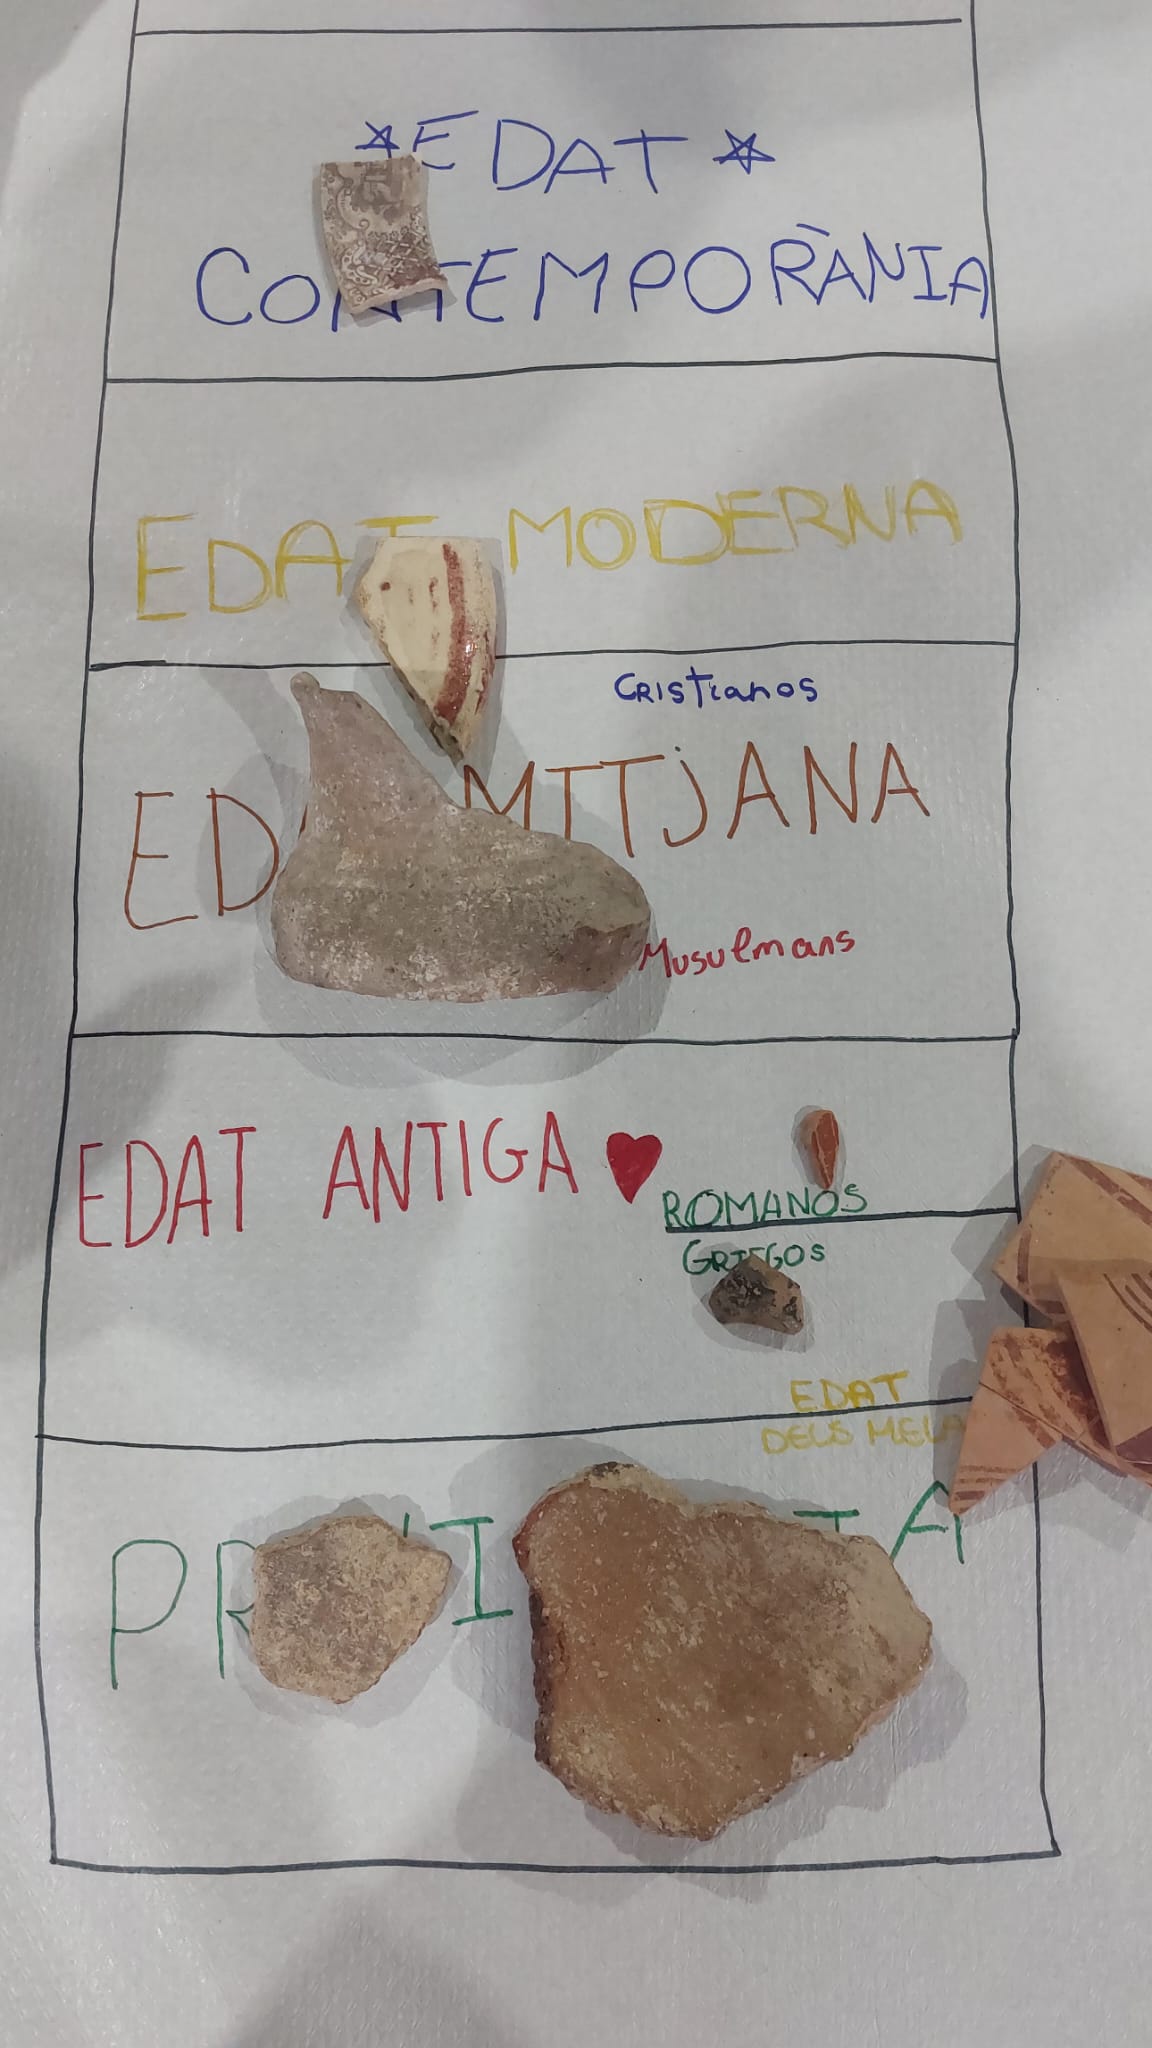 EDAT
CONTEMPORÀNIA
EDAT MODERNA
Cristianos
EDAT MITjANA
Musulmans
EDAT ANTIGA
ROMANOS
GRIEGOS
EDAT
DELS